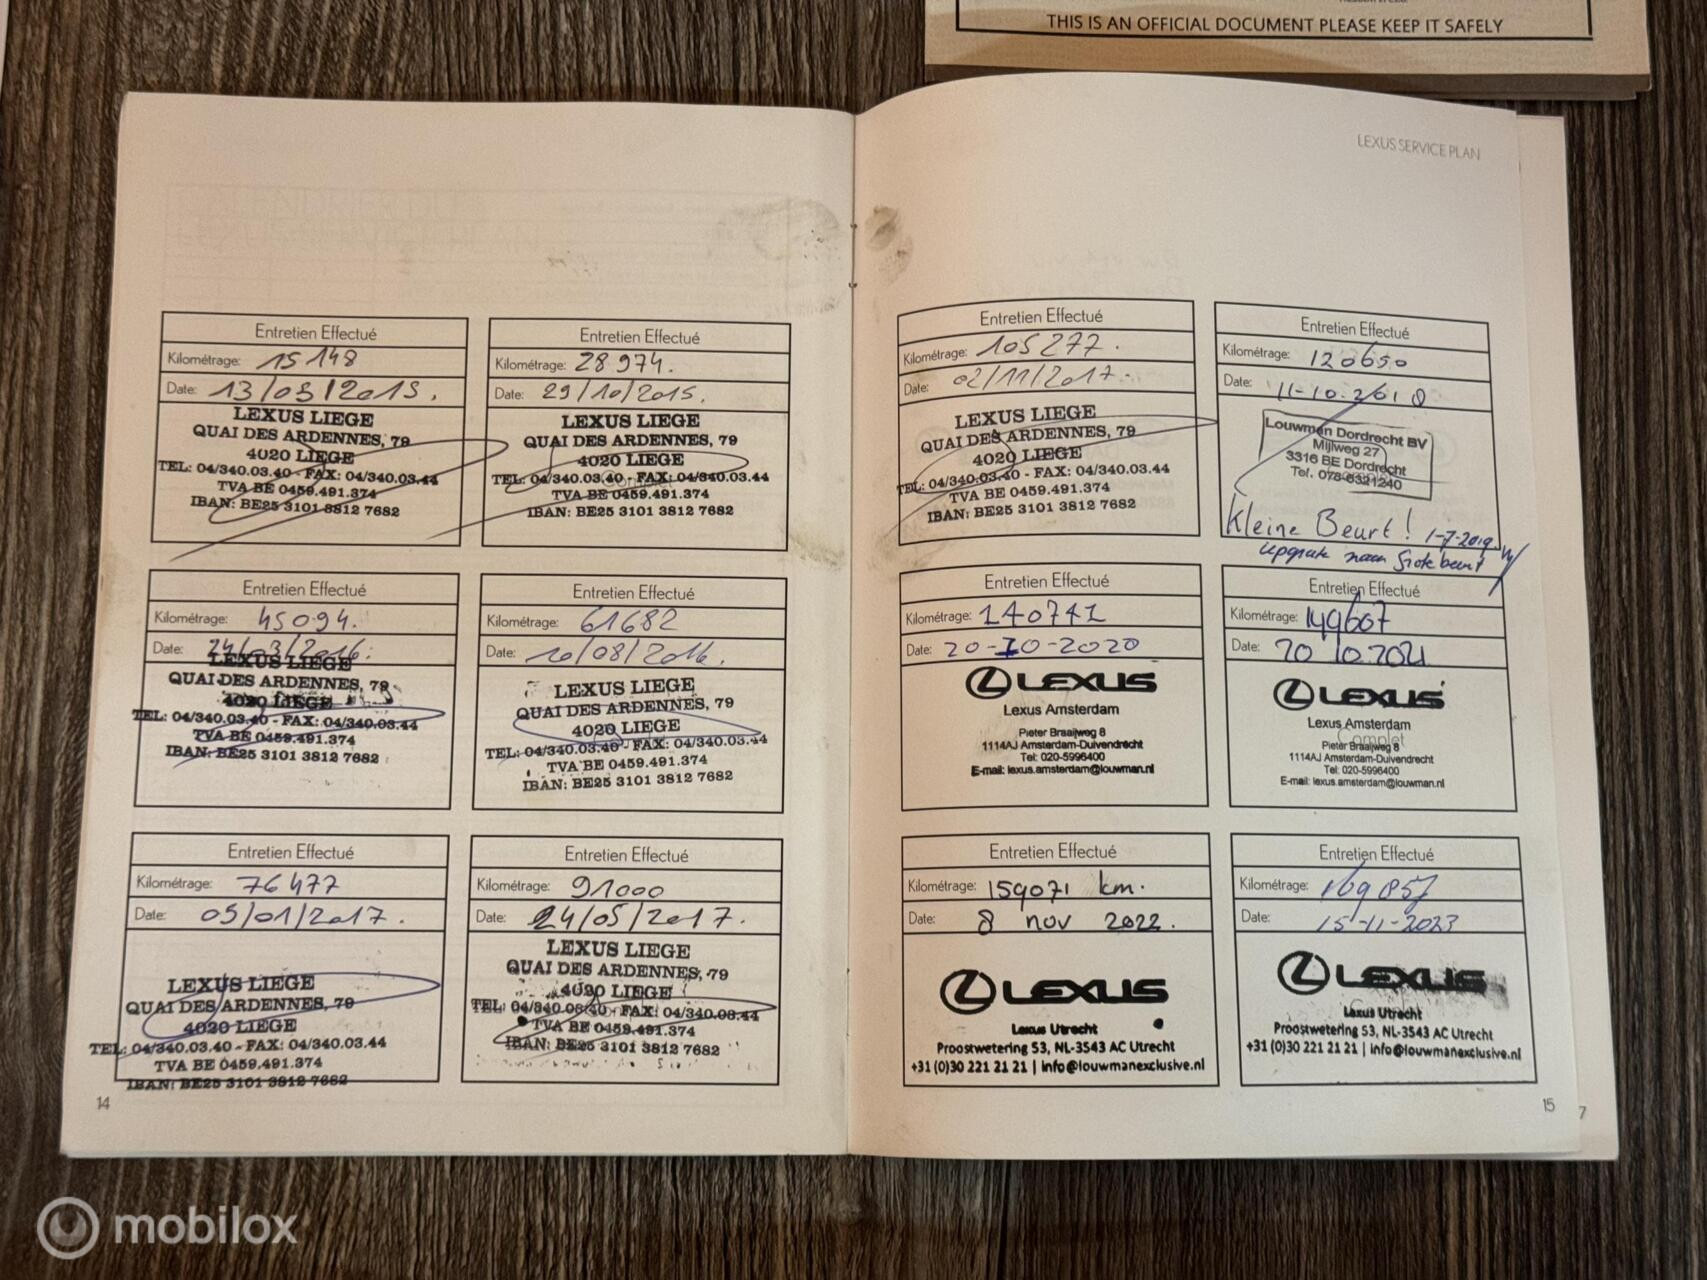 THIS IS AN OFFICIAL DOCUMENT PLEASE KEEP IT SAFELY
LEXUS SERVICE PLAN
Entretien Effectué
Kilométrage: 15 148
Date: 13/03/2015.
LEXUS LIEGE
QUAI DES ARDENNES, 79
4020 LIEGE
TEL: 04/340.03.40 - FAX: 04/340.03.44
TVA BE 0459.491.374
IBAN: BE25 3101 3812 7682
Entretien Effectué
Kilométrage: 28 974.
Date: 29/10/2015.
LEXUS LIEGE
QUAI DES ARDENNES, 79
4020 LIEGE
Complet
TEL: 04/340.03.40 - FAX: 04/340.03.44
TVA BE 0459.491.374
IBAN: BE25 3101 3812 7682
Entretien Effectué
Kilométrage: 45094.
Date: 24/03/2016.
LEXUS LIEGE
QUAI DES ARDENNES, 79
4020 LIEGE
TEL: 04/340.03.40 - FAX: 04/340.03.44
TVA BE 0459.491.374
IBAN: BE25 3101 3812 7682
Entretien Effectué
Kilométrage: 61682
Date: 10/08/2016.
LEXUS LIEGE
QUAI DES ARDENNES, 79
4020 LIEGE
TEL: 04/340.03.40 - FAX: 04/340.03.44
TVA BE 0459.491.374
IBAN: BE25 3101 3812 7682
Entretien Effectué
Kilométrage: 76477
Date: 05/01/2017.
LEXUS LIEGE
QUAI DES ARDENNES, 79
4020 LIEGE
TEL: 04/340.03.40 - FAX: 04/340.03.44
TVA BE 0459.491.374
IBAN: BE25 3101 3812 7682
Entretien Effectué
Kilométrage: 91000
Date: 24/05/2017.
LEXUS LIEGE
QUAI DES ARDENNES, 79
4020 LIEGE
TEL: 04/340.03.40 - FAX: 04/340.03.44
TVA BE 0459.491.374
IBAN: BE25 3101 3812 7682
14
Entretien Effectué
Kilométrage: 105277.
Date: 02/11/2017.
LEXUS LIEGE
QUAI DES ARDENNES, 79
4020 LIEGE
TEL: 04/340.03.40 - FAX: 04/340.03.44
TVA BE 0459.491.374
IBAN: BE25 3101 3812 7682
Entretien Effectué
Kilométrage: 120650
Date: 11-10-2018
Louwman Dordrecht BV
Mijlweg 27
3316 BE Dordrecht
Tel. 078-6321240
Kleine Beurt! 1-7-2019
upgrate naar Grote beurt
Entretien Effectué
Kilométrage: 140741
Date: 20-10-2020
LEXUS
Lexus Amsterdam
Pieter Braaijweg 8
1114AJ Amsterdam-Duivendrecht
Tel: 020-5996400
E-mail: lexus.amsterdam@louwman.nl
Entretien Effectué
Kilométrage: 149607
Date: 20 10.2021
LEXUS
Lexus Amsterdam
Complet
Pieter Braaijweg 8
1114AJ Amsterdam-Duivendrecht
Tel: 020-5996400
E-mail: lexus.amsterdam@louwman.nl
Entretien Effectué
Kilométrage: 159071 km.
Date: 8 nov 2022.
LEXUS
Lexus Utrecht
Proostwetering 53, NL-3543 AC Utrecht
+31 (0)30 221 21 21 | info@louwmanexclusive.nl
Entretien Effectué
Kilométrage: 169857
Date: 15-11-2023
LEXUS
Complet
Lexus Utrecht
Proostwetering 53, NL-3543 AC Utrecht
+31 (0)30 221 21 21 | info@louwmanexclusive.nl
15
7
mobilox